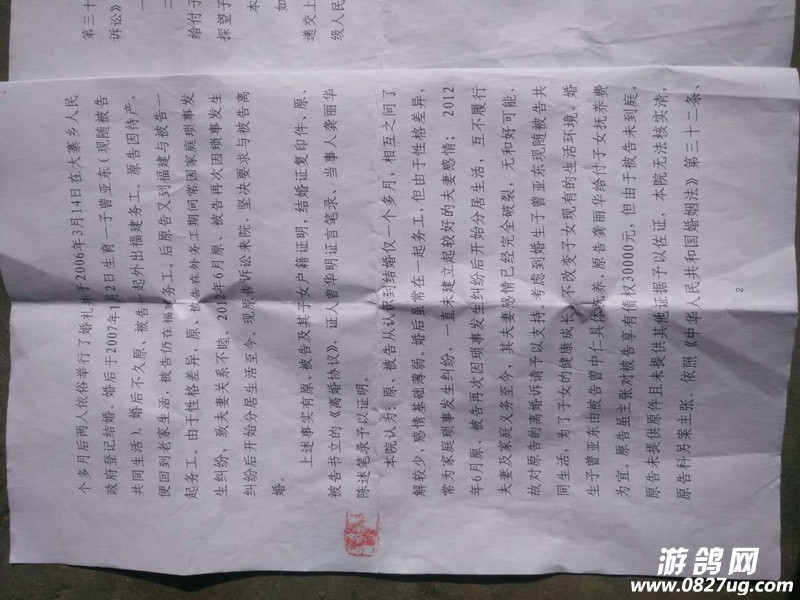 第三十
诉讼》
一
二
给付子
探望子
本
如
递交上
级人民
个多月后两人依俗举行了婚礼并于2006年3月14日在大寨乡人民
政府登记结婚。婚后于2007年1月2日生育一子曾亚东（现随被告
共同生活）。婚后不久原、被告一起外出福建务工。原告因待产，
便回到老家生活，被告仍在福建务工。后原告又到福建与被告一
起务工。由于性格差异，原、被告在外务工期间常因家庭琐事发
生纠纷，致夫妻关系不睦。2012年6月原、被告再次因琐事发生
纠纷后开始分居生活至今。现原告诉讼来院，坚决要求与被告离
婚。
上述事实有原、被告及其子女户籍证明，结婚证复印件、原、
被告书立的《离婚协议》，证人曾华明证言笔录、当事人龚丽华
陈述笔录予以证明。
本院认为：原、被告从认识到结婚仅一个多月，相互之间了
解较少、感情基础薄弱。婚后虽常在一起务工，但由于性格差异，
常为家庭琐事发生纠纷，一直未建立起较好的夫妻感情；2012
年6月原、被告再次因琐事发生纠纷后开始分居生活，互不履行
夫妻及家庭义务至今，其夫妻感情已经完全破裂，无和好可能，
故对原告的离婚诉请予以支持。考虑到婚生子曾亚东现随被告共
同生活，为了子女的健康成长，不改变子女现有的生活环境，婚
生子曾亚东由被告曾中仁具体抚养，原告龚丽华给付子女抚养费
为宜。原告虽主张对被告享有债权30000元，但由于被告未到庭，
原告未提供原件且未提供其他证据予以佐证，本院无法核实清，
原告科另案主张。依照《中华人民共和国婚姻法》第三十二条、
2
游鸽网
www.0827ug.com